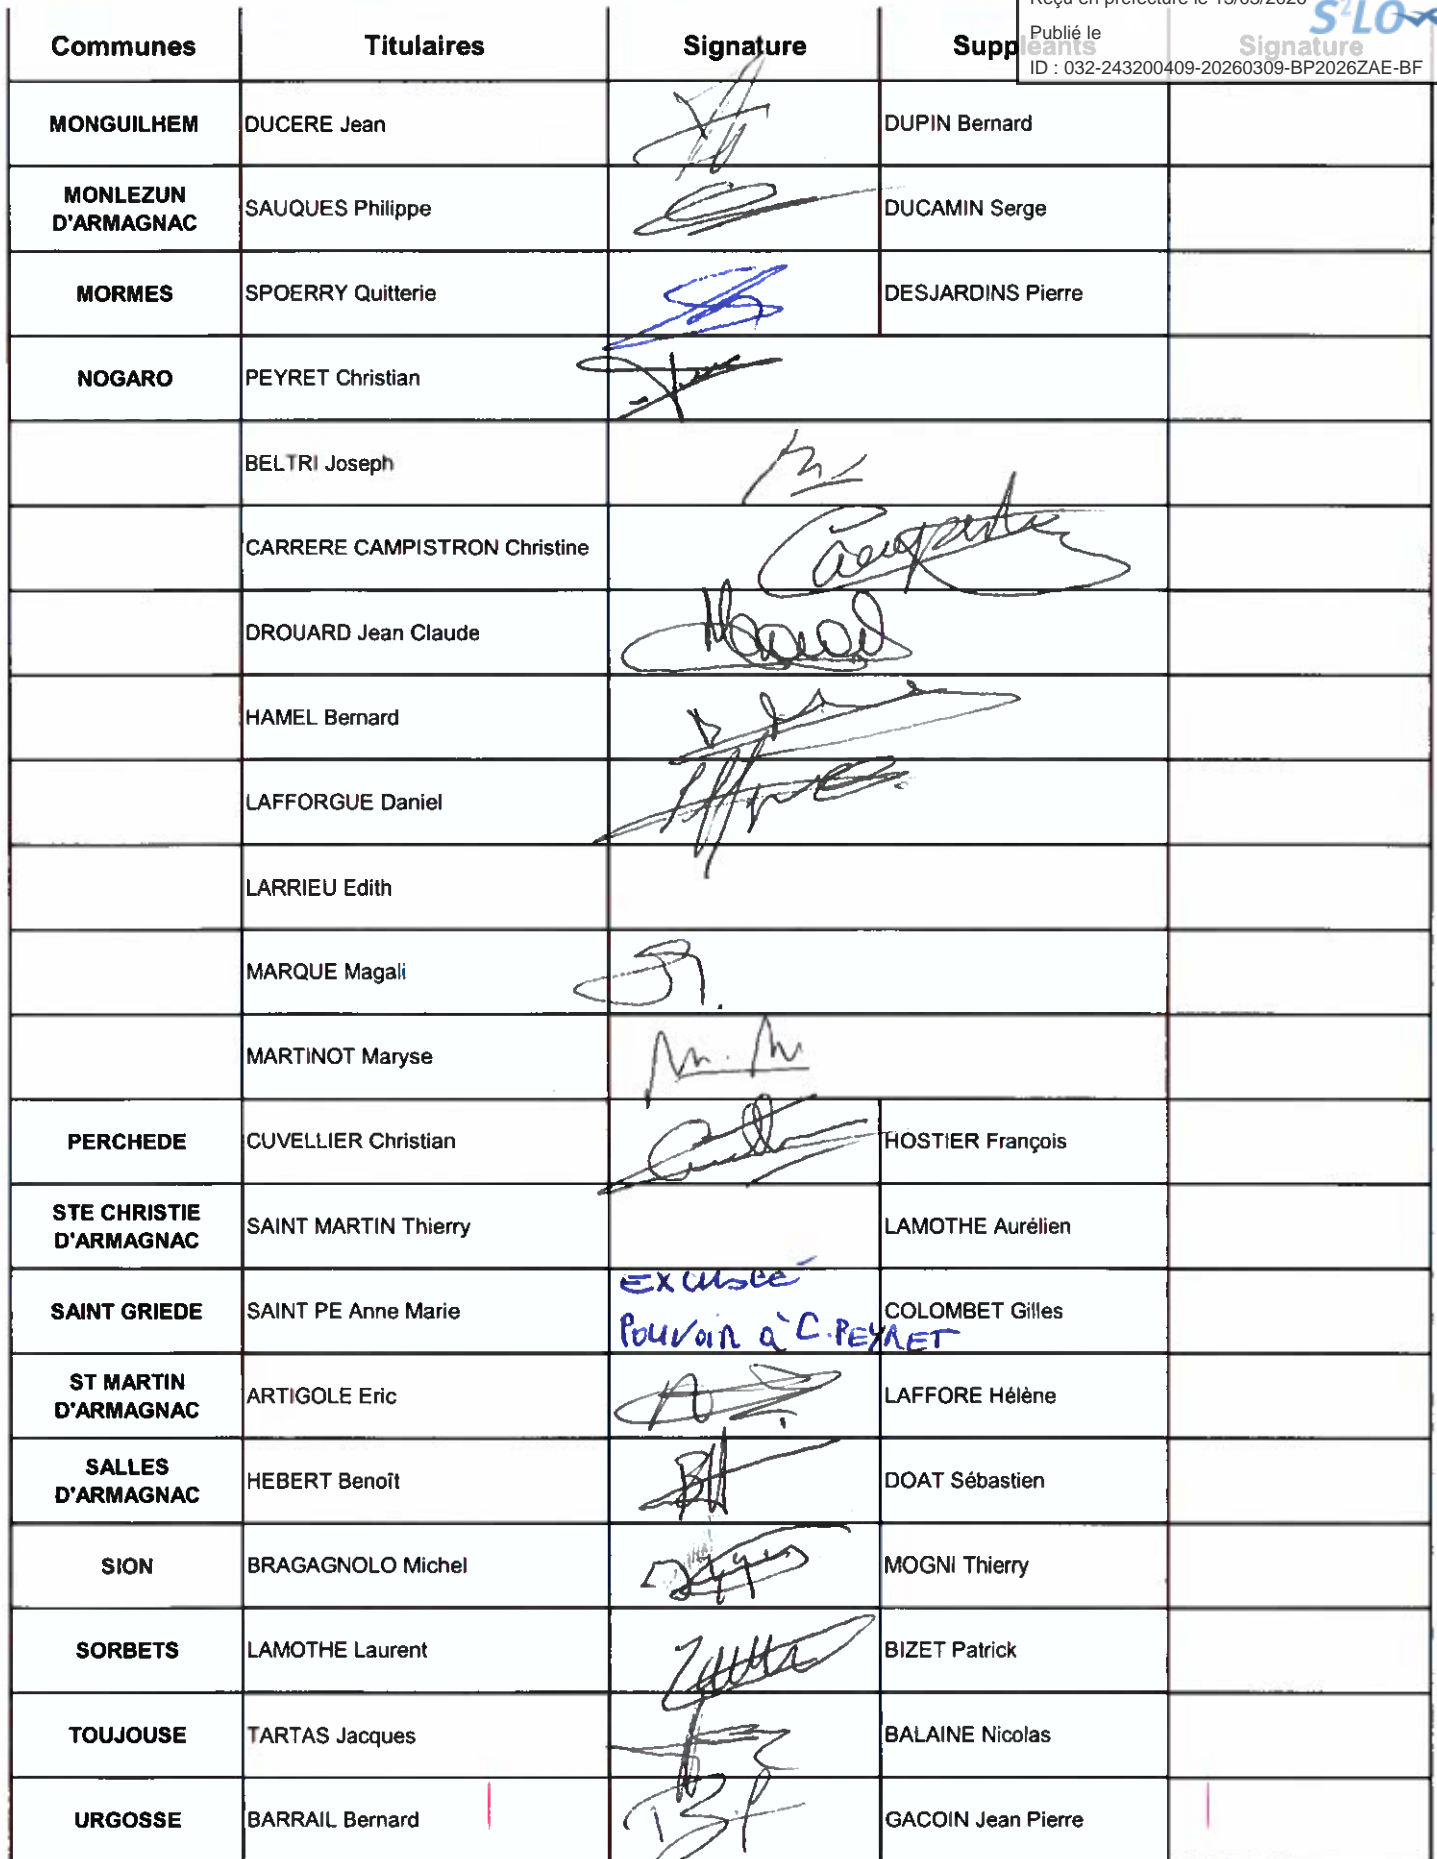 Reçu en préfecture le 13/03/2026
S²LO
Publié le
ID : 032-243200409-20260309-BP2026ZAE-BF
Communes Titulaires Signature Suppléants Signature
MONGUILHEM DUCERE Jean DUPIN Bernard
MONLEZUN
D'ARMAGNAC SAUQUES Philippe DUCAMIN Serge
MORMES SPOERRY Quitterie DESJARDINS Pierre
NOGARO PEYRET Christian
BELTRI Joseph
CARRERE CAMPISTRON Christine
DROUARD Jean Claude
HAMEL Bernard
LAFFORGUE Daniel
LARRIEU Edith
MARQUE Magali
MARTINOT Maryse
PERCHEDE CUVELLIER Christian HOSTIER François
STE CHRISTIE
D'ARMAGNAC SAINT MARTIN Thierry LAMOTHE Aurélien
EXCUSÉE
SAINT GRIEDE SAINT PE Anne Marie COLOMBET Gilles
Pouvoir à C. PEYRET
ST MARTIN
D'ARMAGNAC ARTIGOLE Eric LAFFORE Hélène
SALLES
D'ARMAGNAC HEBERT Benoît DOAT Sébastien
SION BRAGAGNOLO Michel MOGNI Thierry
SORBETS LAMOTHE Laurent BIZET Patrick
TOUJOUSE TARTAS Jacques BALAINE Nicolas
URGOSSE BARRAIL Bernard GACOIN Jean Pierre